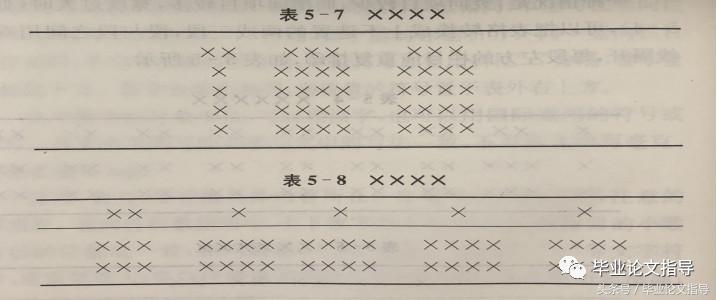 表 5-7 ××××
×× ×××× ×××
× ×××× ××××
× ×××× ××××
× ×××× ××××
× ×××× ××××
表 5-8 ××××
×× × × × ×
××× ×××× ×××× ×××× ××××
××× ×××× ×××× ×××× ××××
毕业论文指导
头条号 / 毕业论文指导